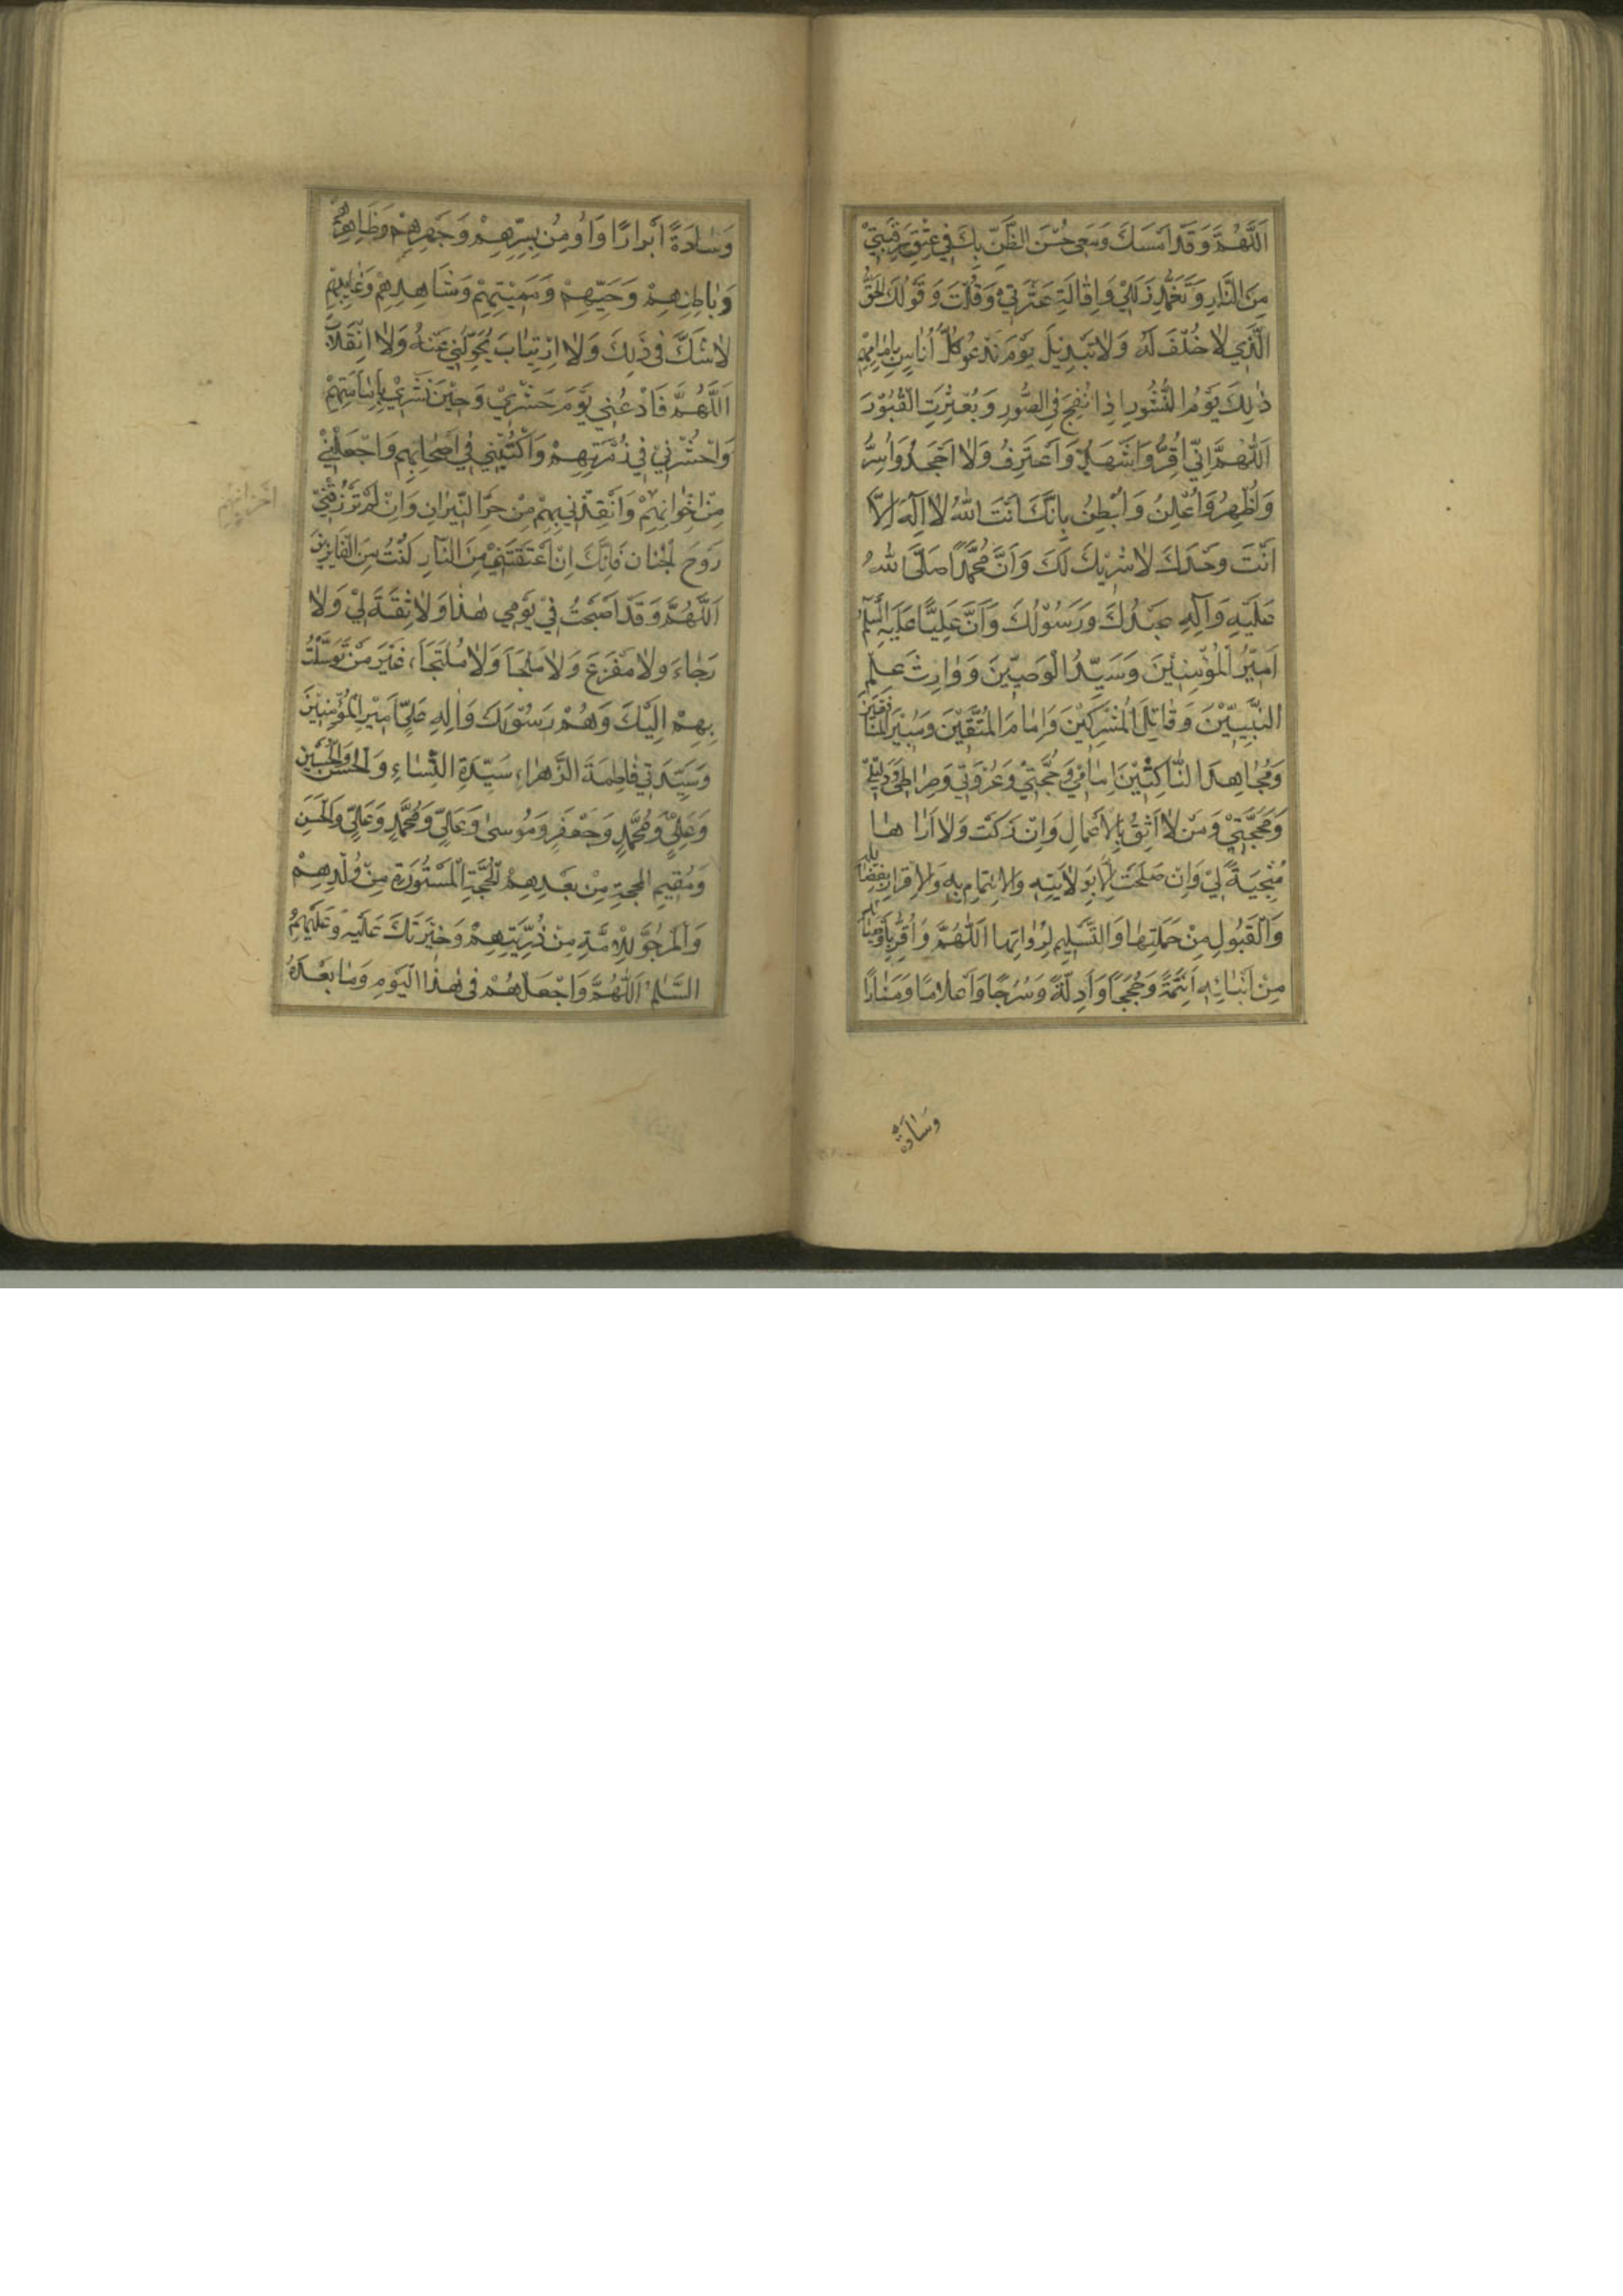 اَللّٰهُمَّ وَقَدْ اَمْسَكَ وَمَعِي حُسْنَ الظَّنِّ بِكَ فِي عِتْقِ رَقَبَتِيْ
مِنَ النَّارِ وَتَغَمُّدِ زَلَلِيْ وَاِقَالَةِ عَثْرَتِيْ وَقُلْتَ وَقَوْلُكَ الْحَقُّ
الَّذِي لَا خُلْفَ لَهُ وَلَا تَبْدِيْلَ يَوْمَ نَدْعُو كُلَّ اُنَاسٍ بِاِمَامِهِمْ
ذٰلِكَ يَوْمُ النُّشُورِ اِذَا نُفِخَ فِي الصُّورِ وَبُعْثِرَتِ الْقُبُوْرَ
اَللّٰهُمَّ اِنِّي اُقِرُّ وَاَشْهَدُ وَاَعْتَرِفُ وَلَا اَجْحَدُ وَاُسِرُّ
وَاُظْهِرُ وَاُعْلِنُ وَاُبْطِنُ بِاَنَّكَ اَنْتَ اللّٰهُ لَا اِلٰهَ اِلَّا
اَنْتَ وَحْدَكَ لَا شَرِيْكَ لَكَ وَاَنَّ مُحَمَّدًا صَلَّى اللّٰهُ
عَلَيْهِ وَآلِهِ عَبْدُكَ وَرَسُوْلُكَ وَاَنَّ عَلِيًّا عَلَيْهِ السَّلَمُ
اَمِيْرُ الْمُؤْمِنِيْنَ وَسَيِّدُ الْوَصِيِّينَ وَوَارِثُ عِلْمِ
النَّبِيِّيْنَ وَقَاتِلَ الْمُشْرِكِيْنَ وَاِمَامَ الْمُتَّقِيْنَ وَمُبِيْرَ الْمُنَافِقِيْنَ
وَمُجَاهِدَ النَّاكِثِيْنَ اِمَامِيْ وَحُجَّتِيْ وَعُرْوَتِيْ وَصِرَاطِيْ وَدَلِيْلِيْ
وَمَحَجَّتِيْ وَمَنْ لَا اَثِقُ بِالْاَعْمَالِ وَاِنْ زَكَتْ وَلَا اَرَاهَا
مُنْجِيَةً لِيْ وَاِنْ صَلَحَتْ اِلَّا بِوِلَايَتِهِ وَالْاِيتِمَامِ بِهِ وَالْاِقْرَارِ بِفَضَائِلِهِ
وَالْقَبُولِ مِنْ حَمَلَتِهَا وَالتَّسْلِيمِ لِرُوَاتِهَا اَللّٰهُمَّ وَاُقِرُّ بِاَوْصِيَائِهِ
مِنْ اَبْنَائِهِ اَئِمَّةً وَحُجَجًا وَاَدِلَّةً وَسُرُجًا وَاَعْلَامًا وَمَنَارًا
وَسَادَةً
وَسَادَةً اَبْرَارًا وَاُومِنُ بِسِرِّهِمْ وَجَهْرِهِمْ وَظَاهِرِهِمْ
وَبَاطِنِهِمْ وَحَيِّهِمْ وَمَيِّتِهِمْ وَشَاهِدِهِمْ وَغَايِبِهِمْ
لَا شَكَّ فِي ذٰلِكَ وَلَا اِرْتِيَابَ يُحَوِّلُنِي عَنْهُ وَلَا انْقِلَابَ
اَللّٰهُمَّ فَادْعُنِي يَوْمَ حَشْرِيْ وَحِيْنَ نَشْرِيْ بِاِمَامَتِهِمْ
وَاحْشُرْنِيْ فِي زُمْرَتِهِمْ وَاكْتُبْنِي فِي اَصْحَابِهِمْ وَاجْعَلْنِيْ
مِنْ اِخْوَانِهِمْ وَاَنْقِذْنِي بِهِمْ مِنْ حَرِّ النِّيْرَانِ وَاِنْ لَمْ تَرْزُقْنِيْ
رَوْحَ الْجِنَانِ فَاِنَّكَ اِنْ اَعْتَقْتَنِيْ مِنَ النَّارِ كُنْتُ مِنَ الْفَايِزِيْنَ
اَللّٰهُمَّ وَقَدْ اَصْبَحْتُ فِيْ يَوْمِي هٰذَا وَلَا ثِقَةَ لِيْ وَلَا
رَجَاءَ وَلَا مَفْزَعَ وَلَا مَلْجَاَ وَلَا مُلْتَجَاَ، غَيْرَ مَنْ تَوَسَّلْتُ
بِهِمْ اِلَيْكَ وَهُمْ رَسُوْلُكَ وَاٰلِهِ عَلِيٍّ اَمِيْرِ الْمُؤْمِنِيْنَ
وَسَيِّدَتِي فَاطِمَةَ الزَّهْرَاءِ سَيِّدَةِ النِّسَاءِ وَالْحَسَنِ وَالْحُسَيْنِ
وَعَلِيٍّ وَمُحَمَّدٍ وَجَعْفَرٍ وَمُوسٰى وَعَلِيٍّ وَمُحَمَّدٍ وَعَلِيٍّ وَالْحَسَنِ
وَمُقِيمِ الْحُجَّةِ مِنْ بَعْدِهِمْ الْحُجَّةِ الْمَسْتُورَةِ مِنْ وُلْدِهِمْ
وَالْمَرْجُوِّ لِلْاُمَّةِ مِنْ ذُرِّيَّتِهِمْ وَخِيَرَتِكَ عَلَيْهِ وَعَلَيْهِمُ
السَّلَمُ اَللّٰهُمَّ وَاجْعَلْهُمْ فِي هٰذَا الْيَوْمِ وَمَا بَعْدَهُ